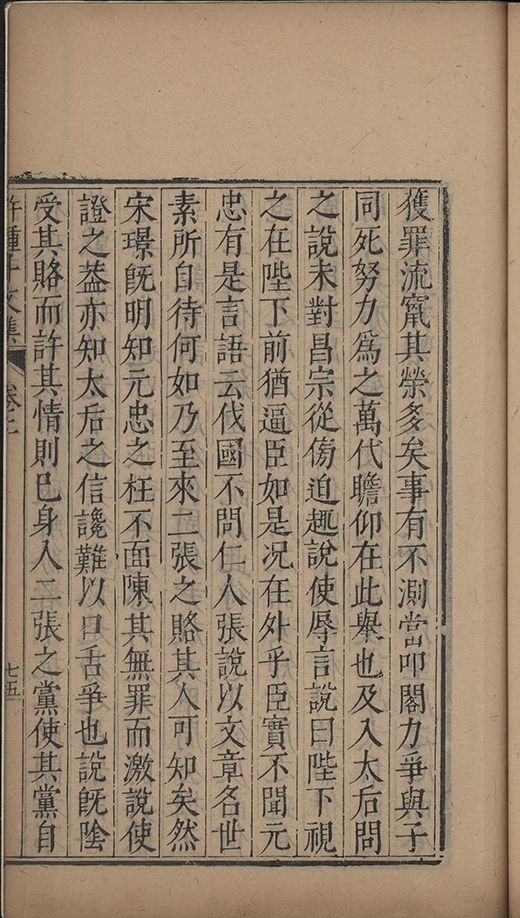 獲罪流竄其榮多矣事有不測當叩閤力爭與子
同死努力爲之萬代瞻仰在此舉也及入太后問
之說未對昌宗從傍迫趣說使辱言說曰陛下視
之在陛下前猶逼臣如是况在外乎臣實不聞元
忠有是言語云伐國不問仁人張說以文章名世
素所自待何如乃至來二張之賂其人可知矣然
宋璟旣明知元忠之枉不面陳其無罪而激說使
證之葢亦知太后之信讒難以口舌爭也說旣陰
受其賂而許其情則已身入二張之黨使其黨自
許鍾斗文集
卷上
七五